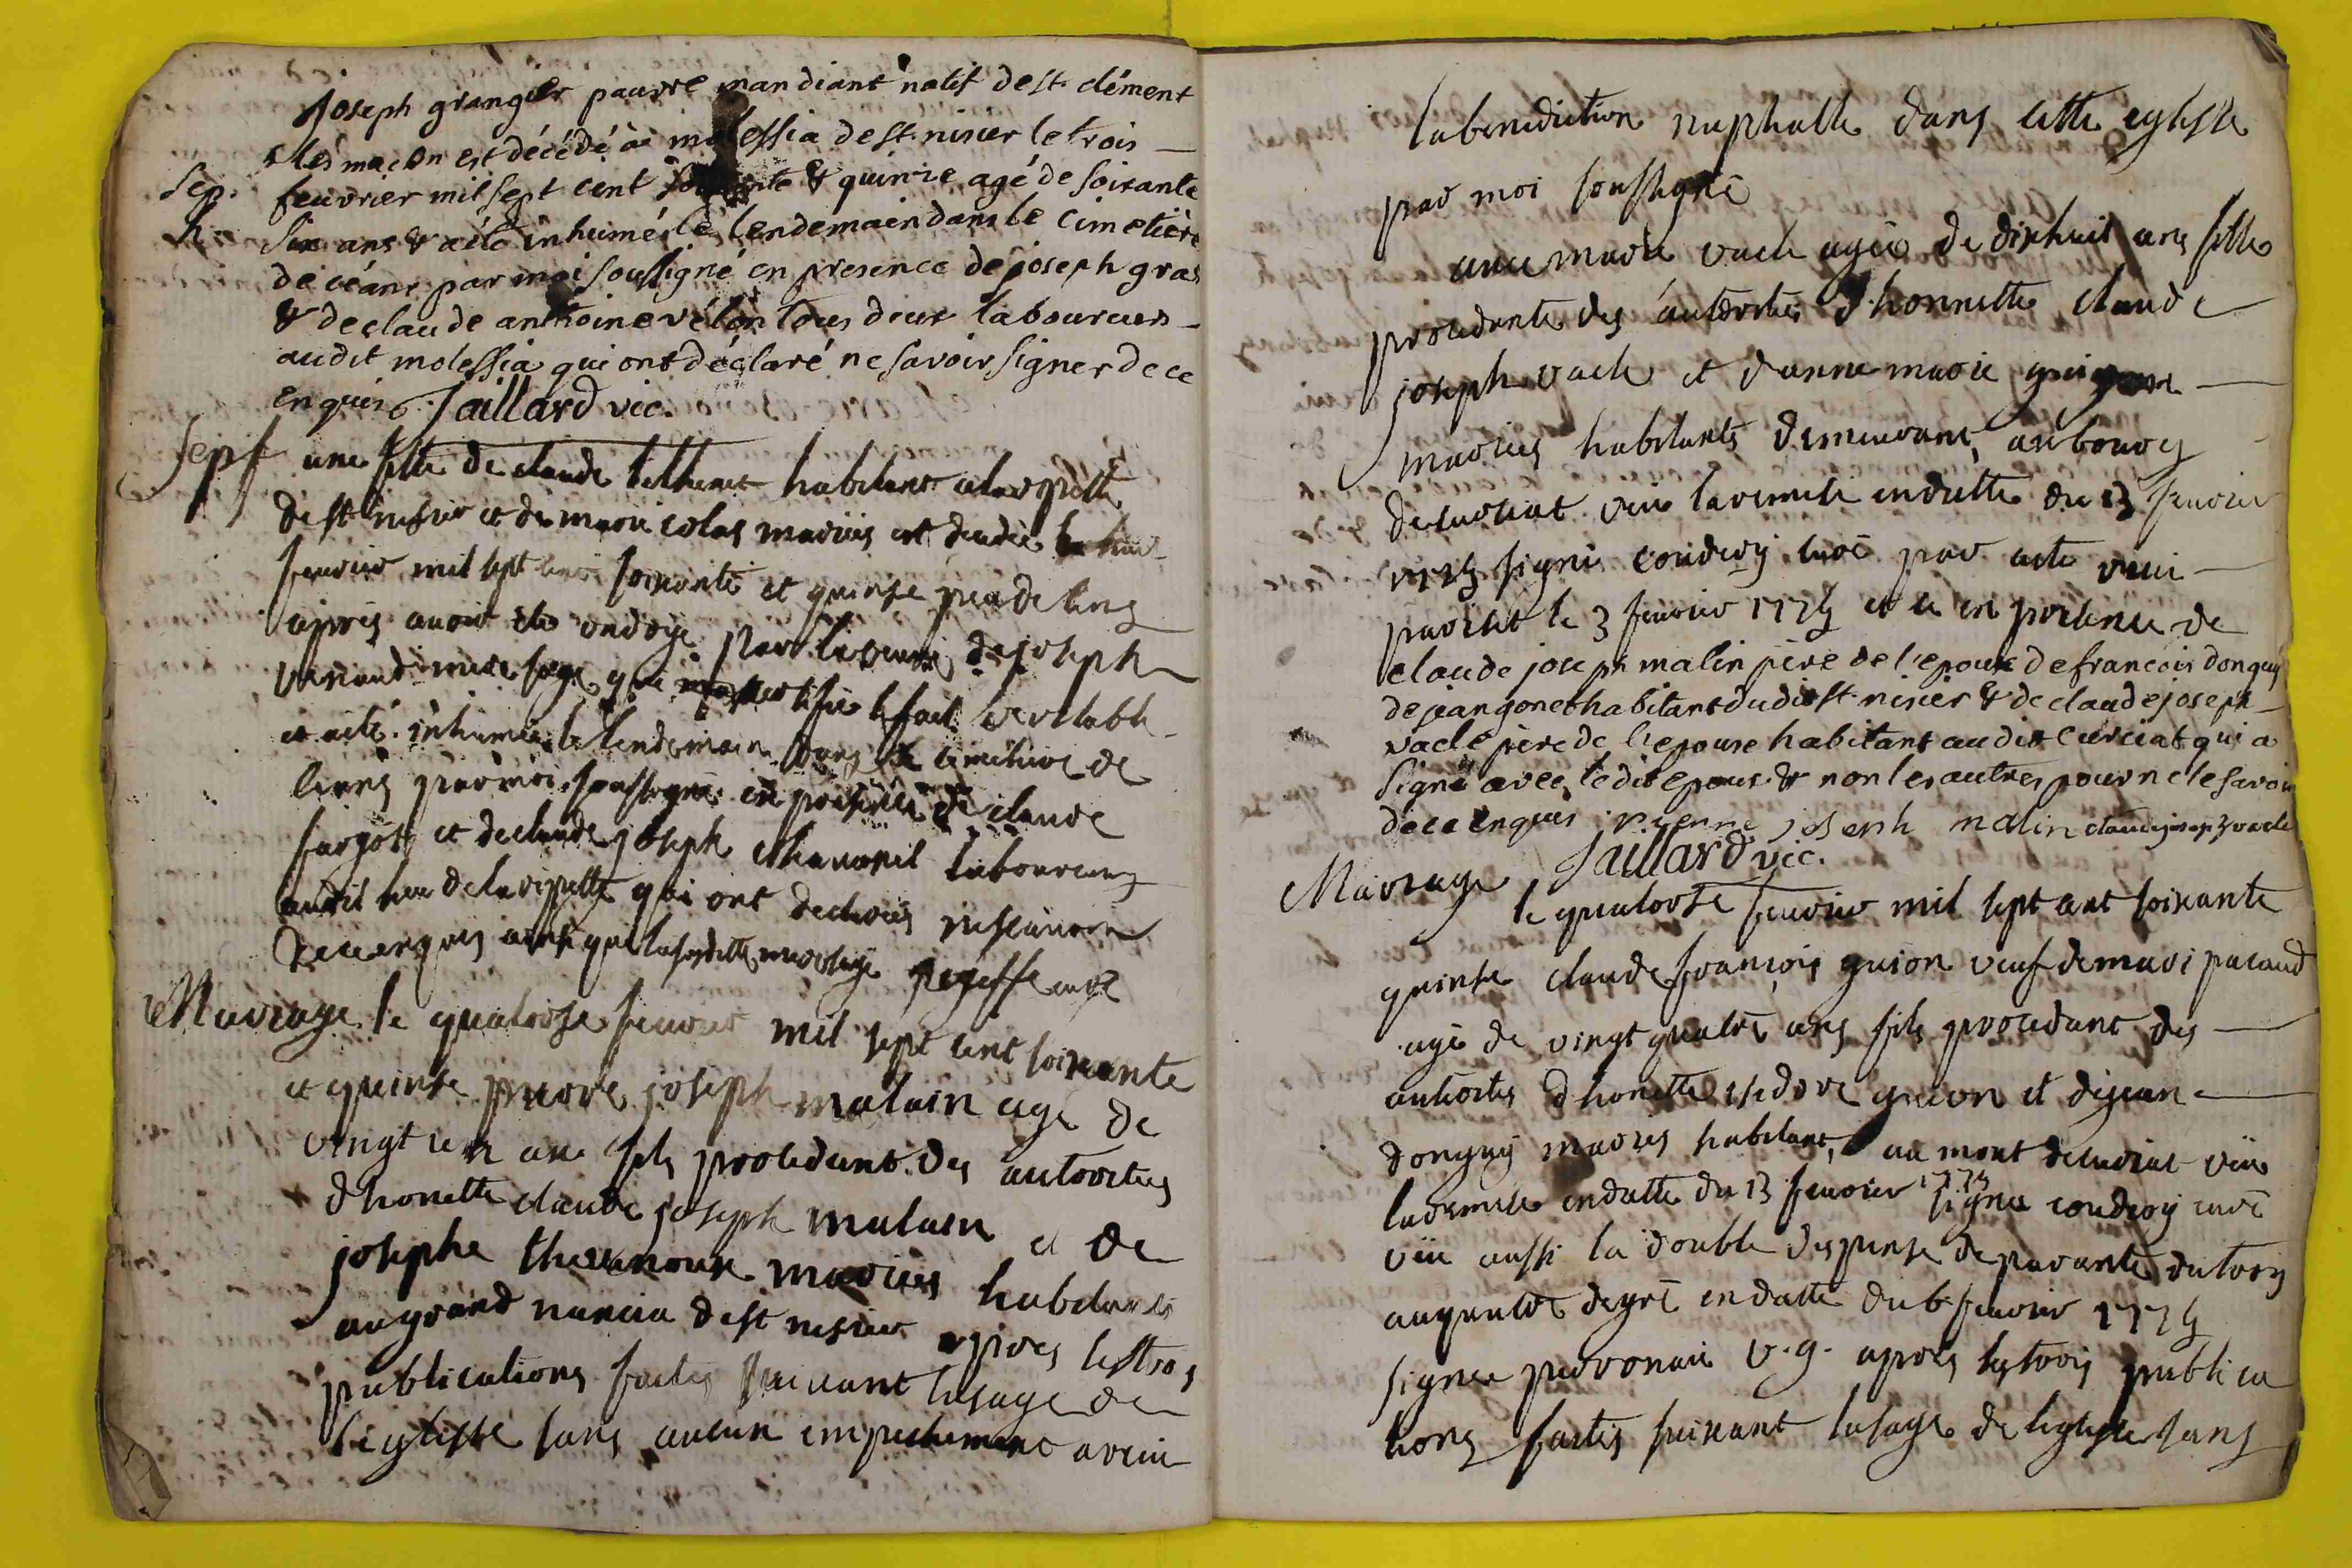 joseph grangier pauvre mandiant natif de st clément
lès macon est décédé à molessia de st nisier le trois
Sep. feuvrier mil sept cent soixante & quinze agé de soixante
h. six ans & a été inhumé le lendemain dans le cimetière
de céans par moi soussigné en presence de joseph gras
& de claude anthoine vélon tous deux laboureurs
audit molessia qui ont déclaré ne savoir signer de ce
enquis Jaillard vic.
Sept une fille de claude habitant
de st nisier et de marie colas mariés est decedée
feuvrier mil sept cent soixante et quinse peu de tems
apres avoir ete ondoyé par la veuve de joseph
mere sage que le fait veritable
et a eté inhumée le lendemain dans le cimetiere de
ceans par moi soussigné en presence de claude
fargot et de claude joseph laboureurs
audit lieu de qui ont declarés ne scavoir
de ce enquis ainsi que la susditte
Mariage le quatorse feuvrier mil sept cent soixante
et quinse pierre joseph malain agé de
vingt un ans fils procedant des autorites
d'honette claude joseph malain et de
josephe thevenoux mariés habitants
au grand nancia de st nisier apres les trois
publications faites suivant lusage de
leglisse sans aucun empechement a recue
la benediction nuptialle dans cette eglisse
par moi soussigné
avec marie vacle agée de dixhuit ans fille
procedante des autorites d'honnette claude
joseph vacle et danne marie guigon
mariés habitants demeurant au bourg
de curciat veu la remise en datte du 13 feuvrier
1775 signé coudroy curé par acte
le 3 feuvrier 1775 et ce en presence de
claude joseph malin père de l'epoux de francois donguy
de jean gonet habitant dudit st nisier & de claude joseph
vacle père de l'epouse habitant audit curciat qui a
signé avec ledit epoux & non les autres pour ne le savoir
de ce enquis pierre joseph malin claude joseph vacle
Jaillard vic.
Mariage
le quatorse feuvrier mil sept cent soixante
quinse claude françois guion veuf de marie pacaud
agé de vingt quatre ans fils procedant des
autorites d'honette isidore guion et de jeanne
donguy mariés habitants au mont de curciat veu
la remise en datte du 13 feuvrier 1775 signé coudroy curé
veu aussi la double dispense de parante du trois
au quatre degré en datte du 6 feuvrier 1775
signée v.g. apres les trois publica
tions faites suivant lusage de leglisse sans